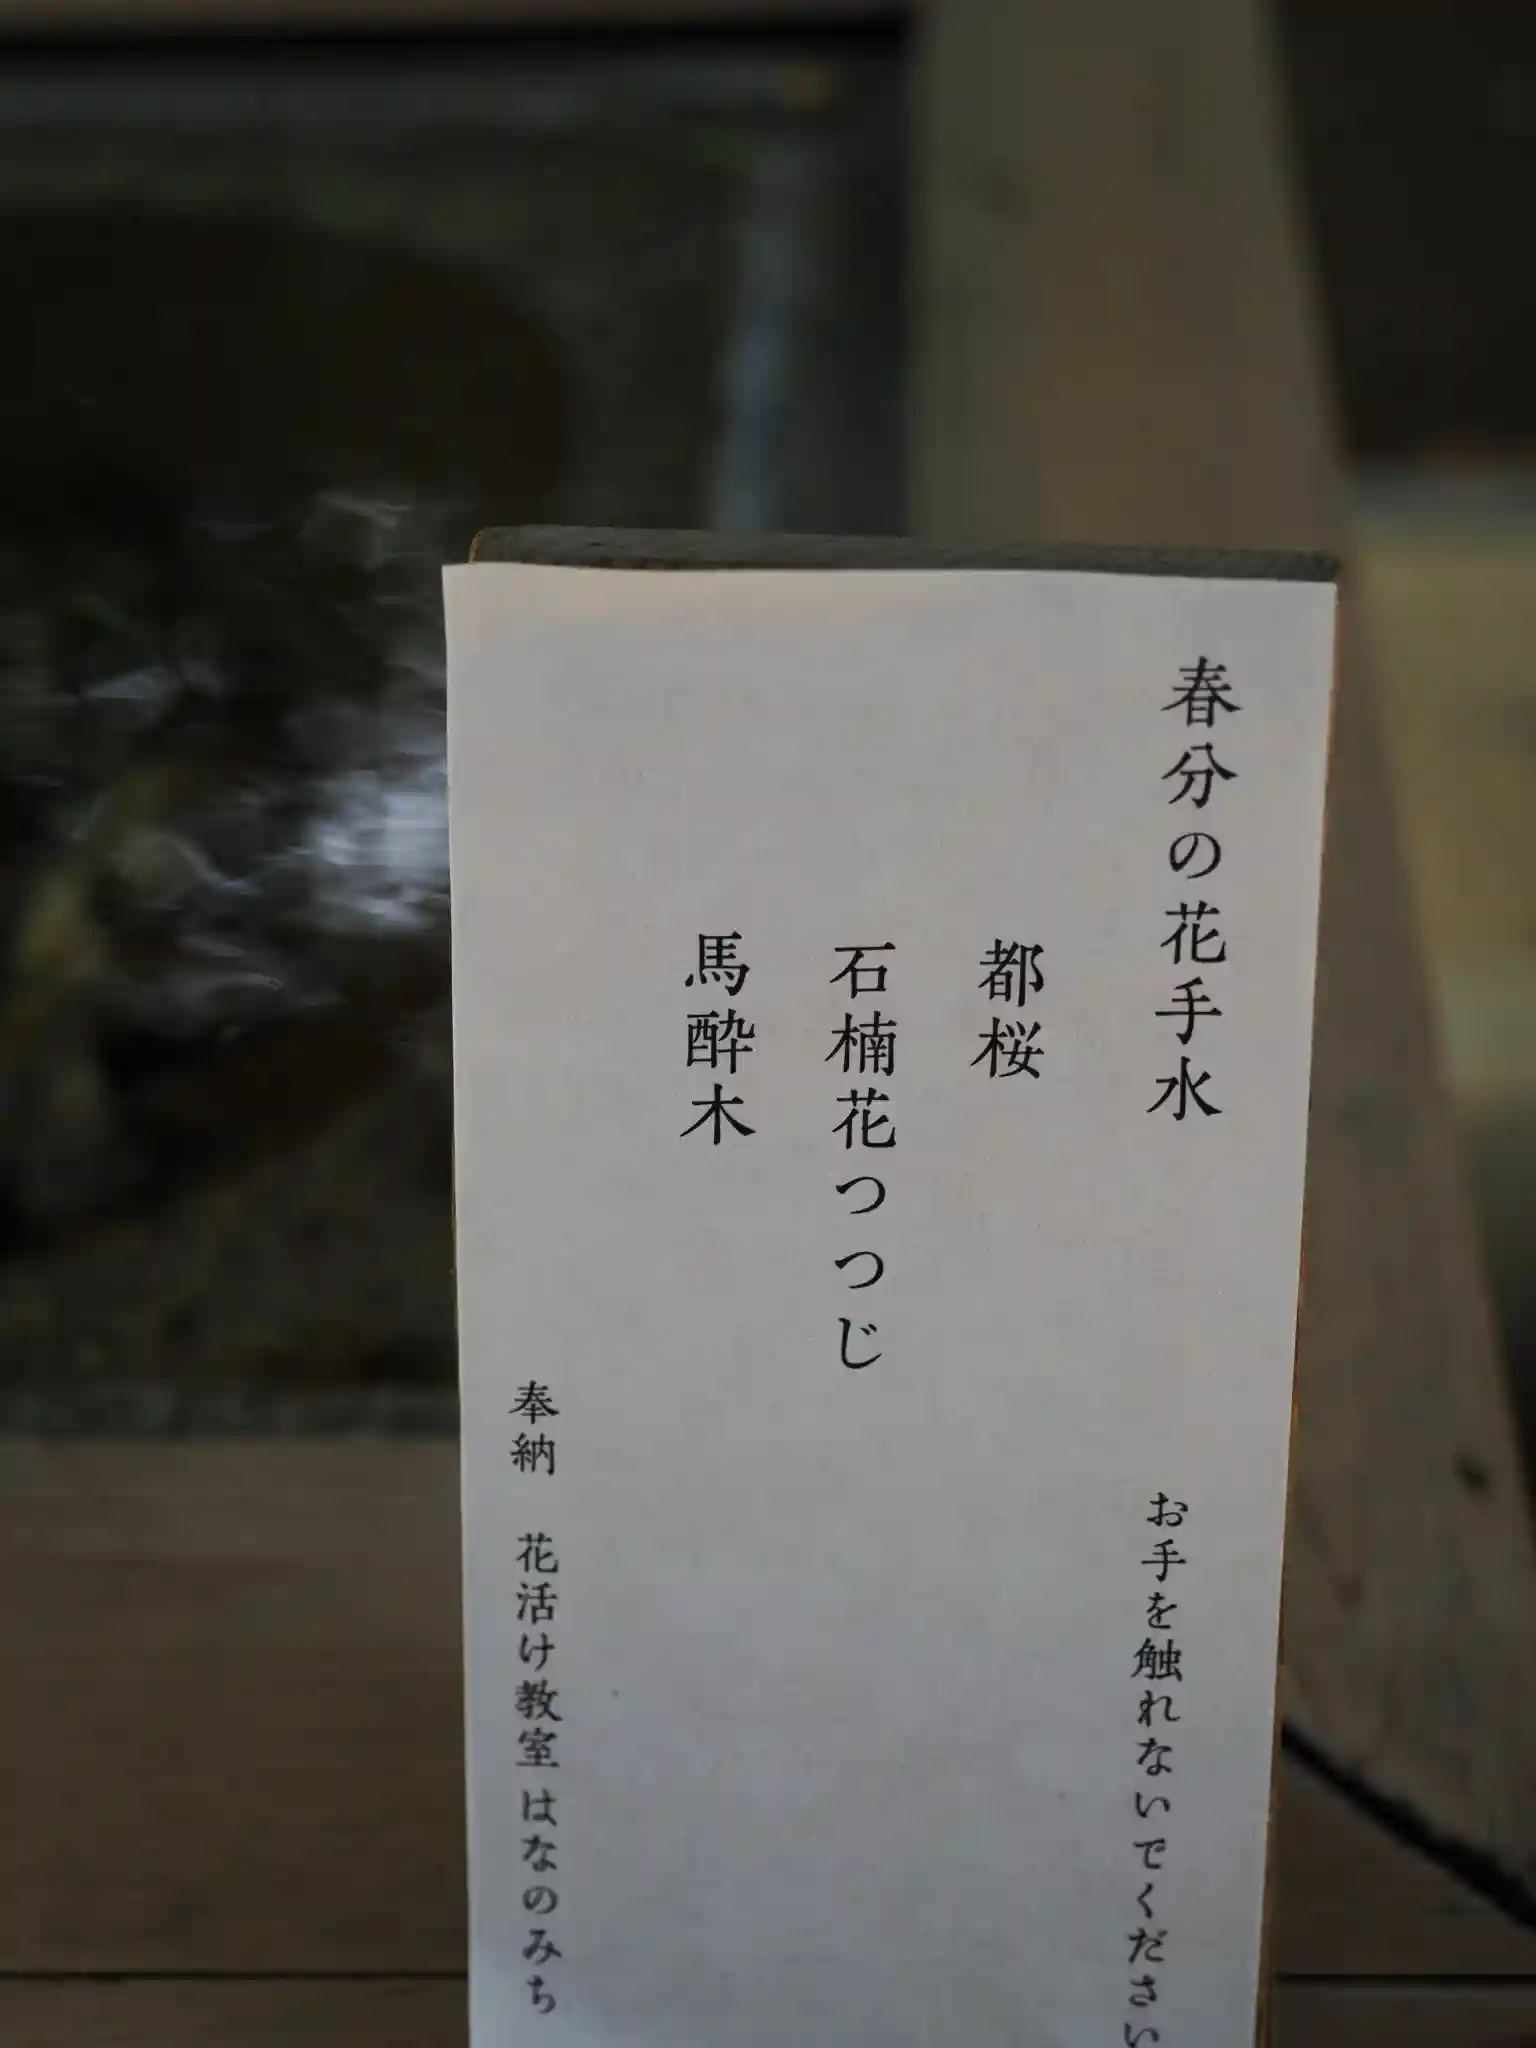 春分の花手水
お手を触れないでください
都桜
石楠花つつじ
馬酔木
奉納 花活け教室 はなのみち